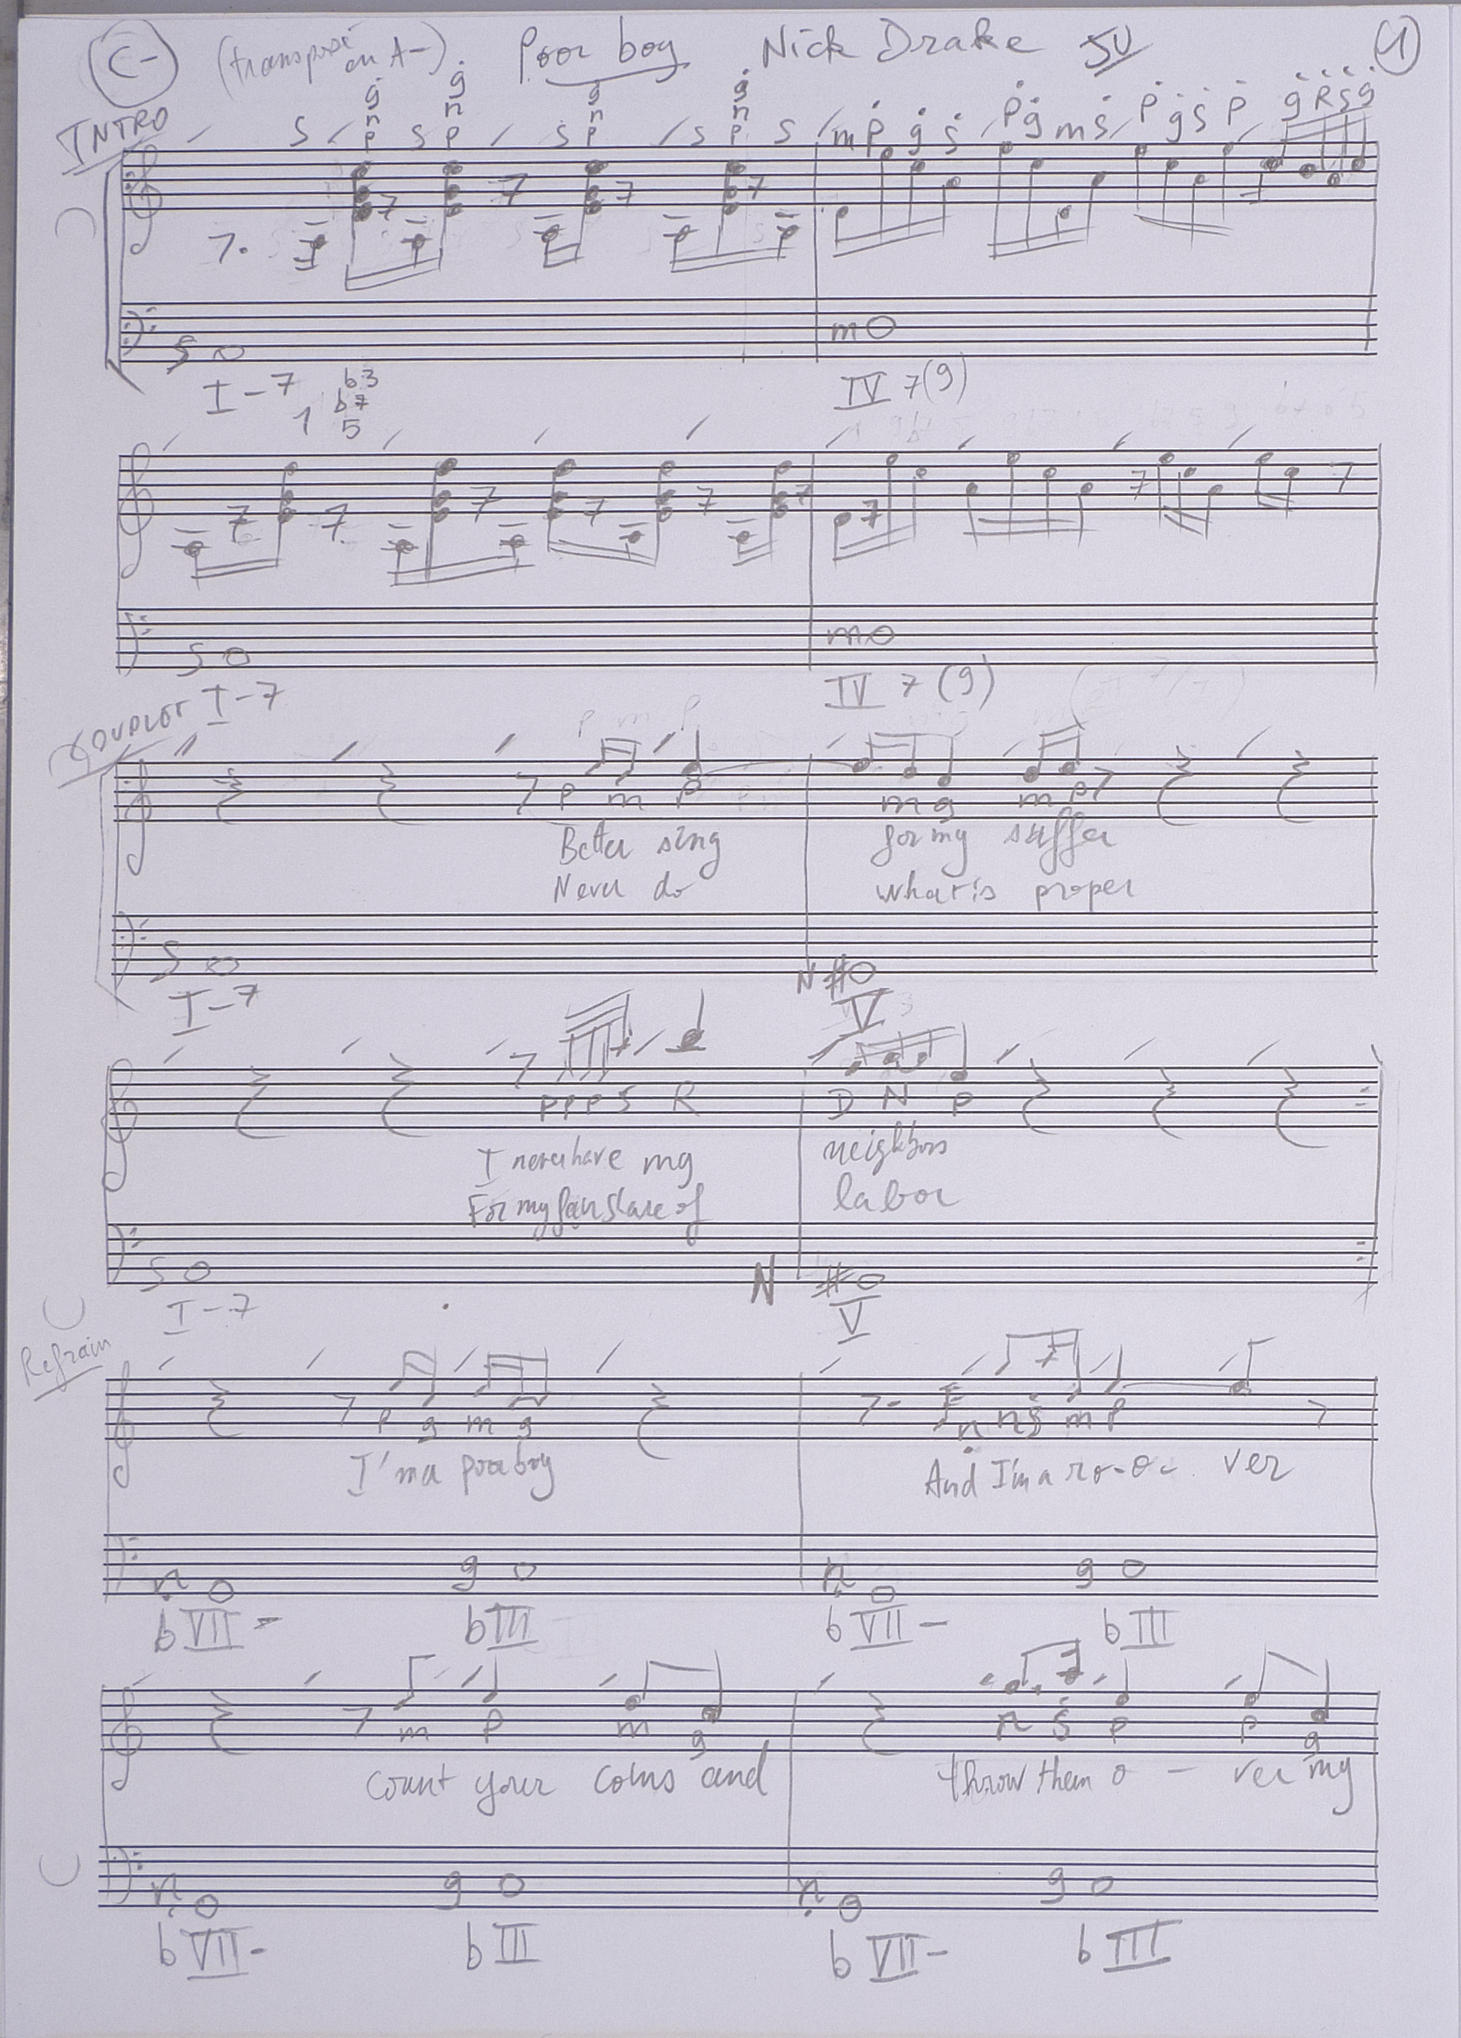 C- (transposé en A-) Poor boy Nick Drake 1
INTRO
g g g g
n n n n
S p S p S p S p S m p g s p g m s p g s p g R s g
S m
I-7 IV 7(9)
1 b3
b7
5
S m
I-7 IV 7(9)
COUPLET
p m p m g m p
Better sing for my suffer
Never do what is proper
S N #
I-7 V
p p p s R D N p
I never have my neighbors
For my fair share of labor
S N #
I-7 V
Refrain
p g m g n n s m p
I'm a poor boy And I'm a ro-o- ver
n g n g
bVII- bIII bVII- bIII
m p m g n s p p g
Count your coins and throw them o - ver my
n g n g
bVII- bIII bVII- bIII